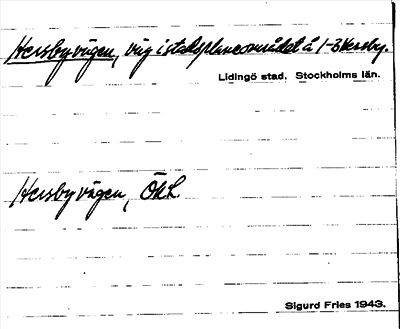 Hersbyvägen, väg i stadsplaneområdet å 1-3 Hersby.
Lidingö stad. Stockholms län.
Hersbyvägen, ÖkL
Sigurd Fries 1943.